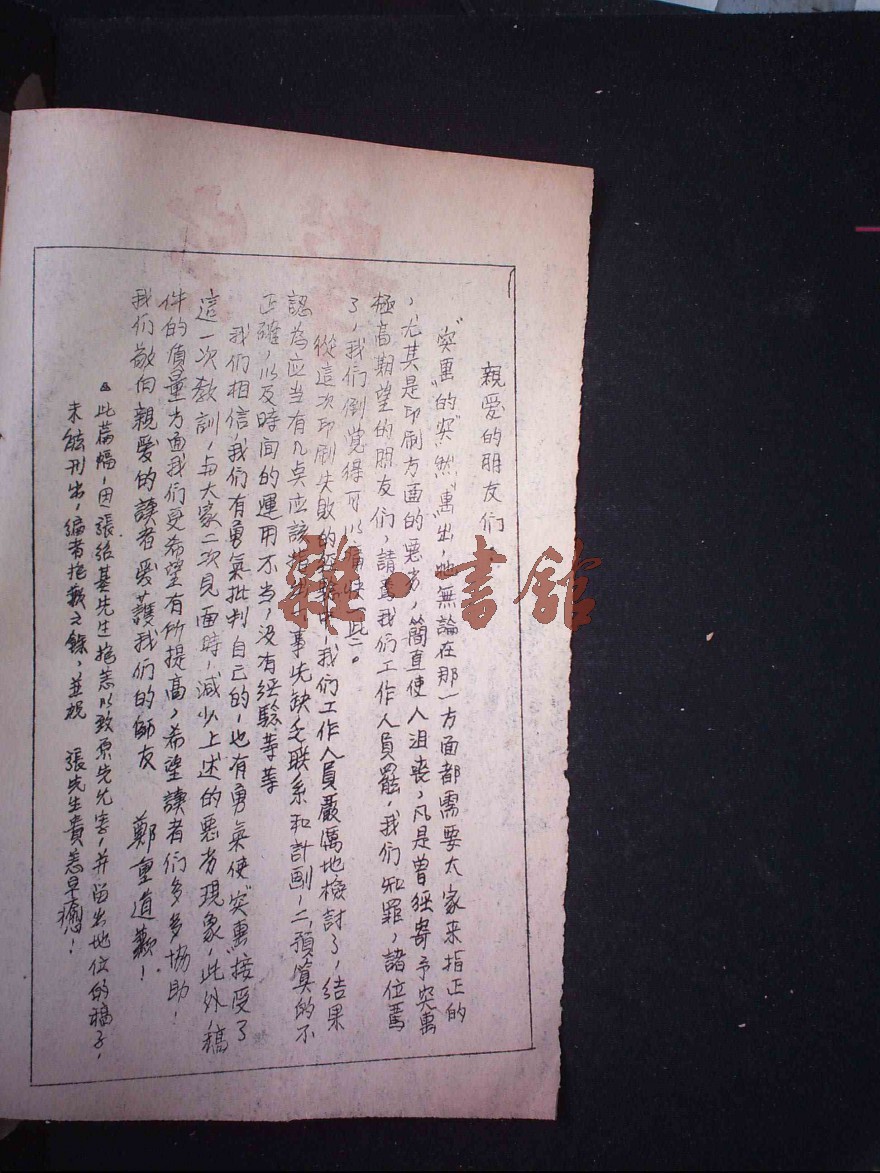 親愛的朋友们
“突画”的“突”然“画”出，她無論在那一方面都需要大家来指正的
，尤其是印刷方面的惡劣，簡直使人沮喪，凡是曾經寄予突画
極高期望的朋友们，請罵我们工作人員罷，我们知罪，諸位罵
了，我们倒覚得可以痛快一些。
從這次印刷失敗的，我们工作人員嚴厲地檢討了，結果
認為应当有几点应該指出事先缺乏联系和計劃，二，預算的不
正確，以及時间的運用不当，没有经驗等等
我们相信，我们有勇氣批判自己的，也有勇氣使“突画”接受了
這一次教訓，与大家二次見面時，減少上述的惡劣現象，此外稿
件的質量方面我们更希望有所提高，希望讀者们多多協助！
我们敬向親愛的讀者愛護我们的師友　鄭重道歉！
△此篇幅，因張绍基先生抱恙以致原先允寄，并留出地位的稿子，
未能刊出，编者抱歉之餘，並祝　張先生貴恙早癒！
雜·書館